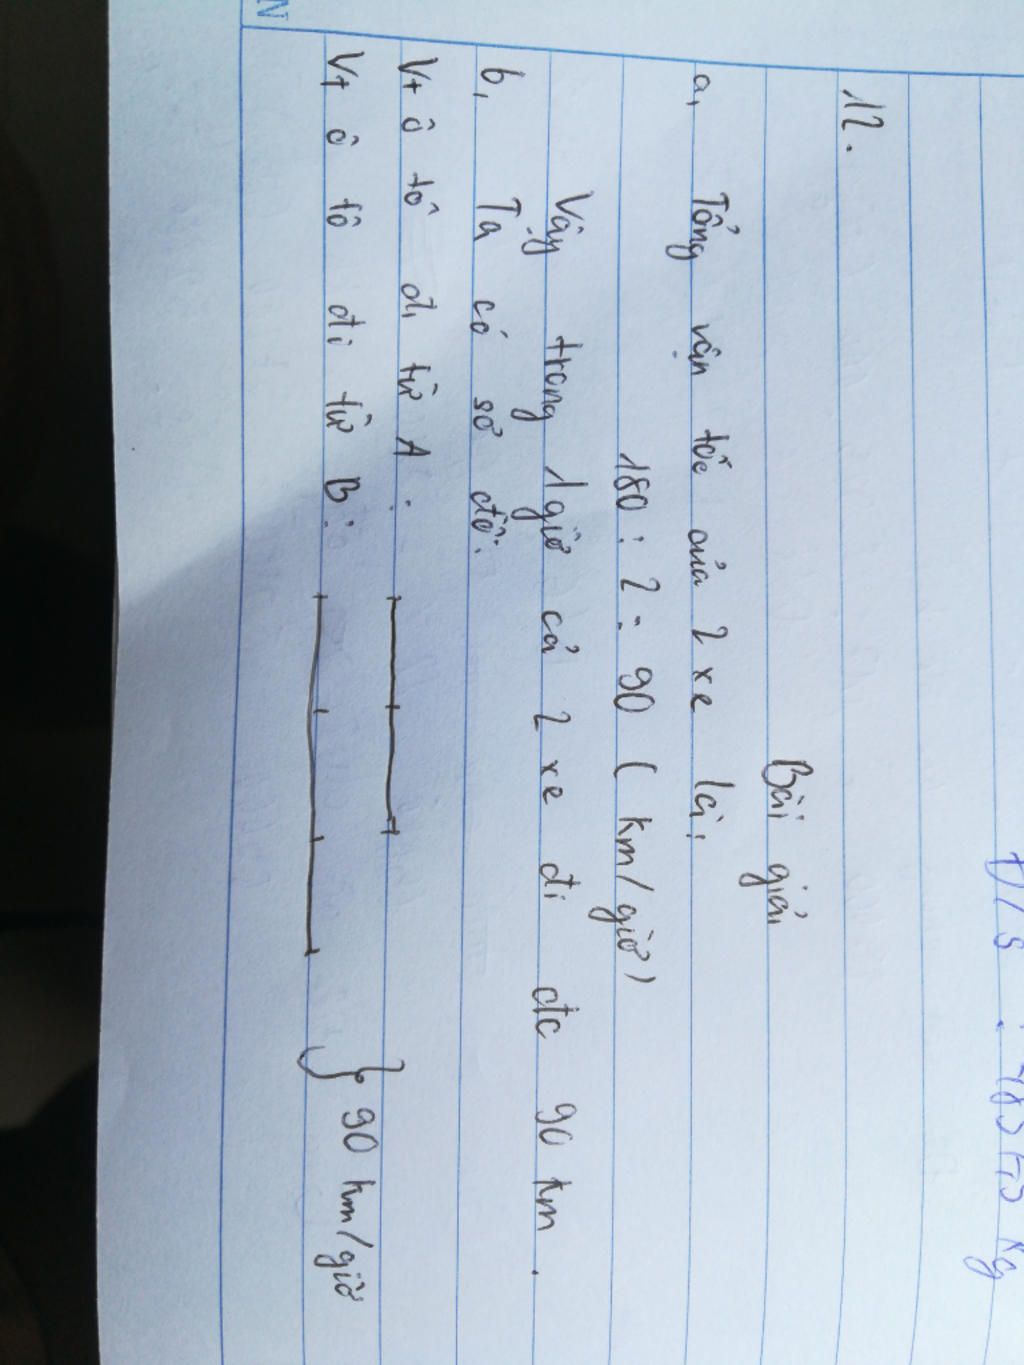 Đ/S :
12.
Bài giải
a, Tổng vận tốc của 2 xe là:
180 : 2 = 90 ( km/giờ)
Vậy trong 1 giờ cả 2 xe đi đc 90 km.
b, Ta có sơ đồ:
V+ ô tô đi từ A :
V+ ô tô đi từ B :
90 km/giờ
N